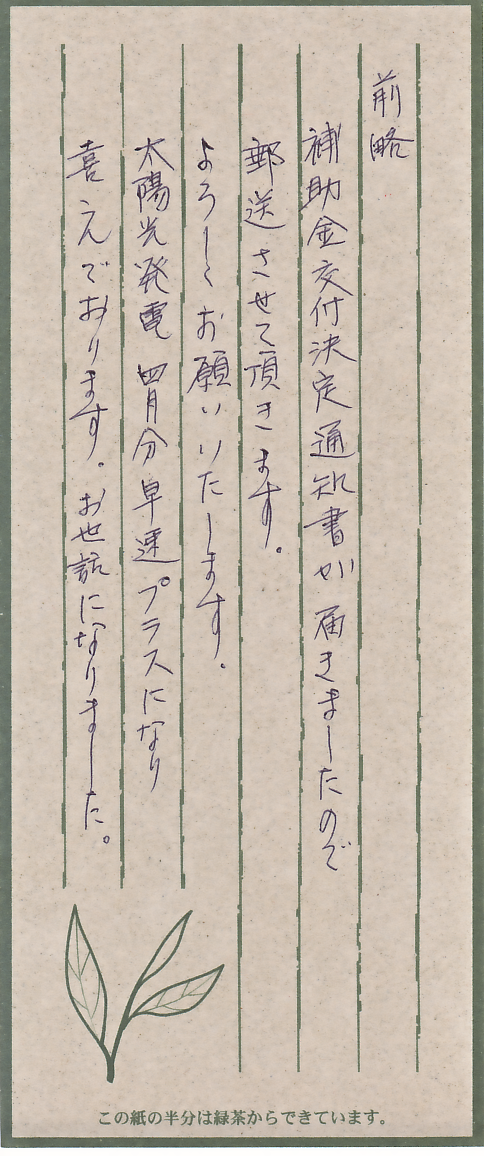 前略
補助金交付決定通知書が届きましたので
郵送させて頂きます。
よろしくお願いいたします。
太陽光発電 四月分早速プラスになり
喜えております。お世話になりました。
この紙の半分は緑茶からできています。